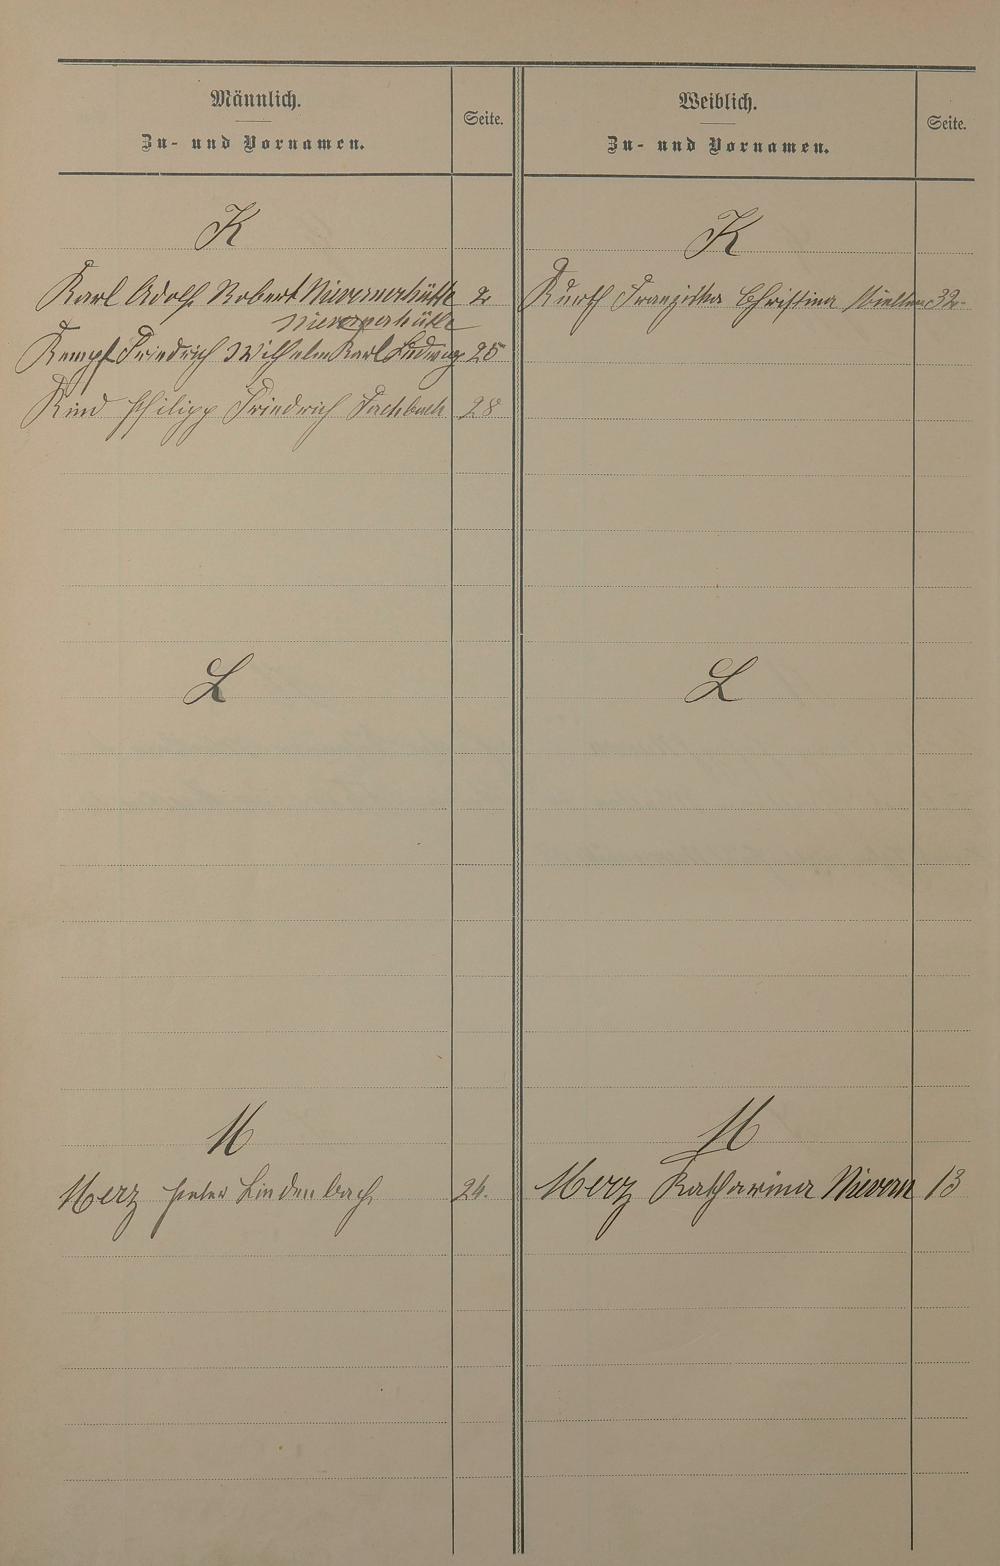 Männlich.
Zu- und Vornamen.
Seite.
Weiblich.
Zu- und Vornamen.
Seite.
K
K
Karl Adolf Robert Nievernerhütte 2
Franziska Christina 32
Nievernerhütte
Kempf Friedrich Wilhelm Karl Ludwig 25
Kind Philipp Friedrich Fachbach 28
L
L
M
M
Merz Peter Lindenbach 24.
Merz Katharina Nievern 13